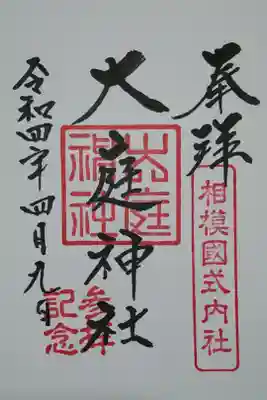 奉拝
相模國式内社
大庭神社
大庭神社
参拝
記念
令和四年四月九日